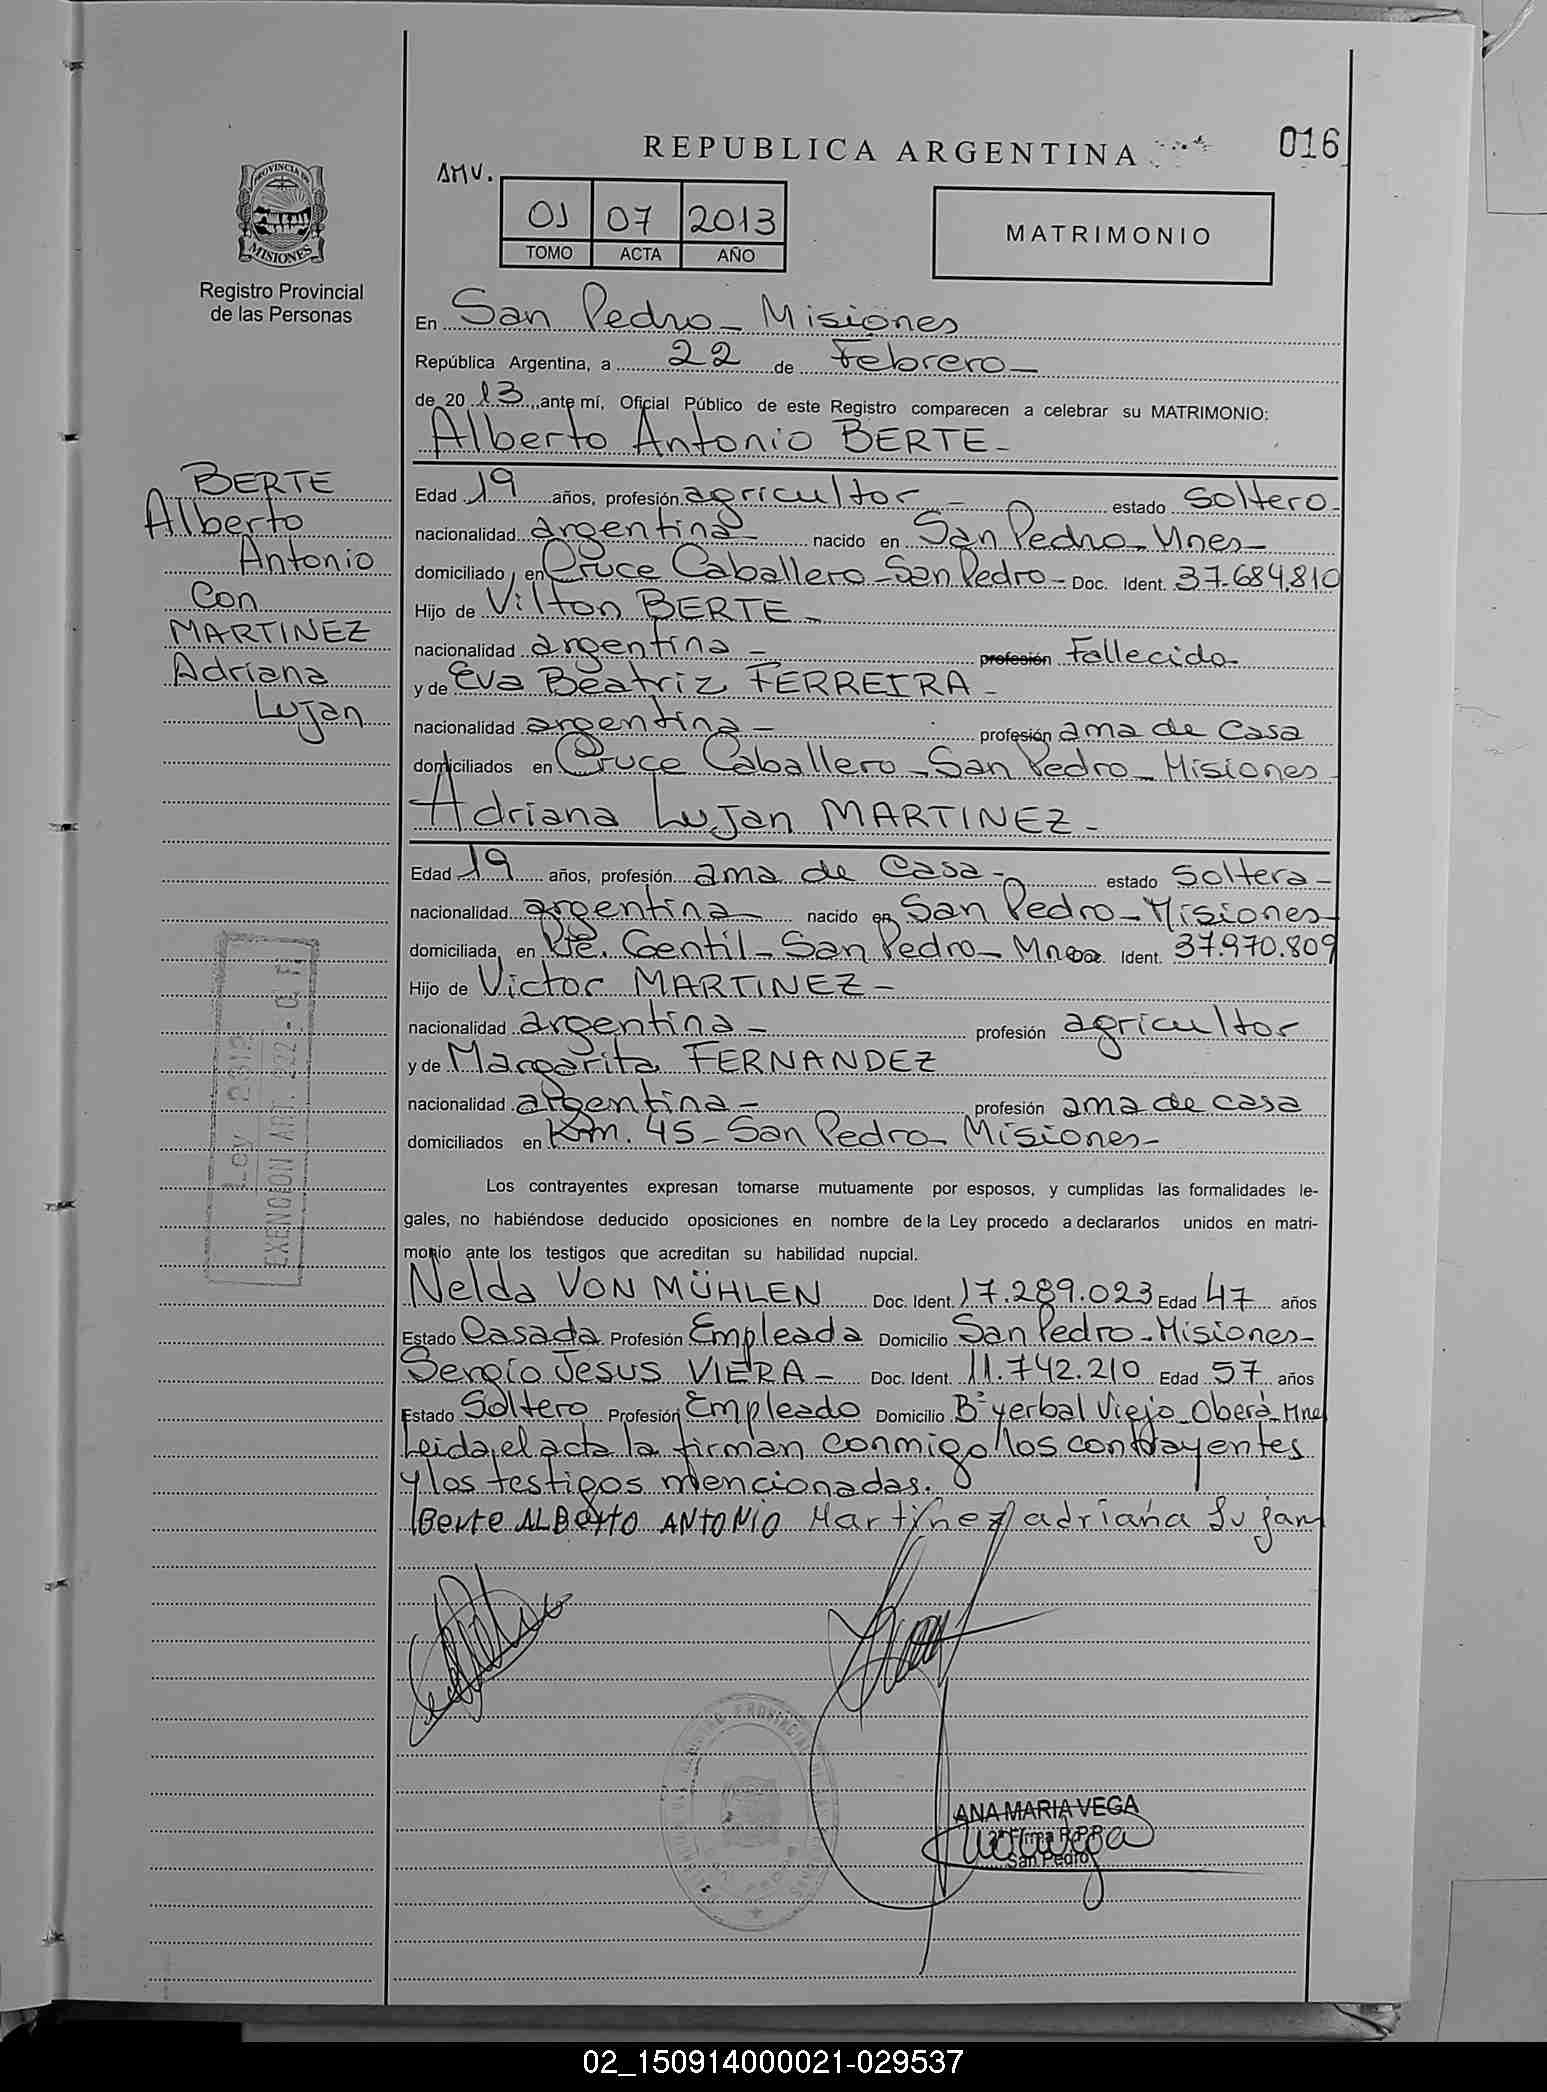 REPUBLICA ARGENTINA
016
AMV.
01 07 2013
TOMO ACTA AÑO
MATRIMONIO
PROVINCIA DE
MISIONES
Registro Provincial
de las Personas
En San Pedro - Misiones
República Argentina, a 22 de Febrero -
de 20 13, ante mí, Oficial Público de este Registro comparecen a celebrar su MATRIMONIO:
Alberto Antonio BERTE -
BERTE
Alberto
Antonio
Con
MARTINEZ
Adriana
Lujan
Edad 19 años, profesión agricultor - estado Soltero -
nacionalidad argentina - nacido en San Pedro - Mnes -
domiciliado en Cruce Caballero - San Pedro - Doc. Ident. 37.684.810
Hijo de Vilton BERTE -
nacionalidad argentina - profesión Fallecido -
y de Eva Beatriz FERREIRA -
nacionalidad argentina - profesión ama de casa
domiciliados en Cruce Caballero - San Pedro - Misiones -
Adriana Lujan MARTINEZ -
Edad 19 años, profesión ama de casa - estado Soltera -
nacionalidad argentina nacido en San Pedro - Misiones -
domiciliada en Pte. Gentil - San Pedro - Mnes Doc. Ident. 37.970.809
Hijo de Victor MARTINEZ -
nacionalidad argentina - profesión agricultor
y de Margarita FERNANDEZ
nacionalidad argentina - profesión ama de casa
domiciliados en Km. 45 - San Pedro - Misiones -
Ley 2813
EXENCION ART. 222 - C. F.
Los contrayentes expresan tomarse mutuamente por esposos, y cumplidas las formalidades le-
gales, no habiéndose deducido oposiciones en nombre de la Ley procedo a declararlos unidos en matri-
monio ante los testigos que acreditan su habilidad nupcial.
Nelda VON MÜHLEN Doc. Ident. 17.289.023 Edad 47 años
Estado Casada Profesión Empleada Domicilio San Pedro - Misiones -
Sergio Jesus VIERA - Doc. Ident. 11.742.210 Edad 57 años
Estado Soltero Profesión Empleado Domicilio Bº yerbal Viejo - Oberá - Mnes
Leida el acta la firman conmigo los contrayentes
y los testigos mencionadas.
Berte ALBERTO ANTONIO Martinez adriana Lujan
ANA MARIA VEGA
2ª Firma R.P.P.
San Pedro
02_150914000021-029537